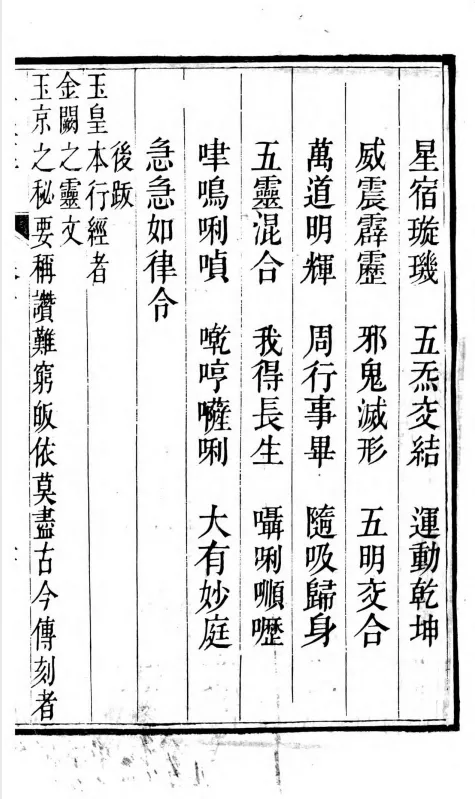 星宿璇璣　五炁交結　運動乾坤
威震霹靂　邪鬼滅形　五明交合
萬道明輝　周行事畢　隨吸歸身
五靈混合　我得長生　囁唎㘋嚦
㖀鳴唎㗌　㖇哼㘔唎　大有妙庭
急急如律令
後跋
玉皇本行經者
金闕之靈文
玉京之秘要稱讚難窮皈依莫盡古今傳刻者